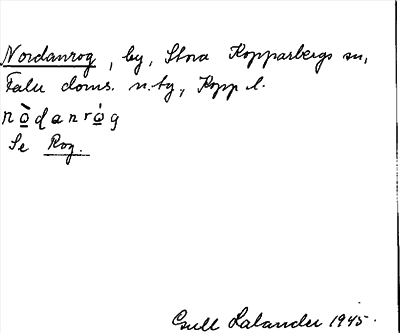 Nordanrog, by, Stora Kopparbergs sn,
Falu doms. n. tg, Kopp l.
nò̱danró̱g
Se Rog.
Gull Lalander 1945.